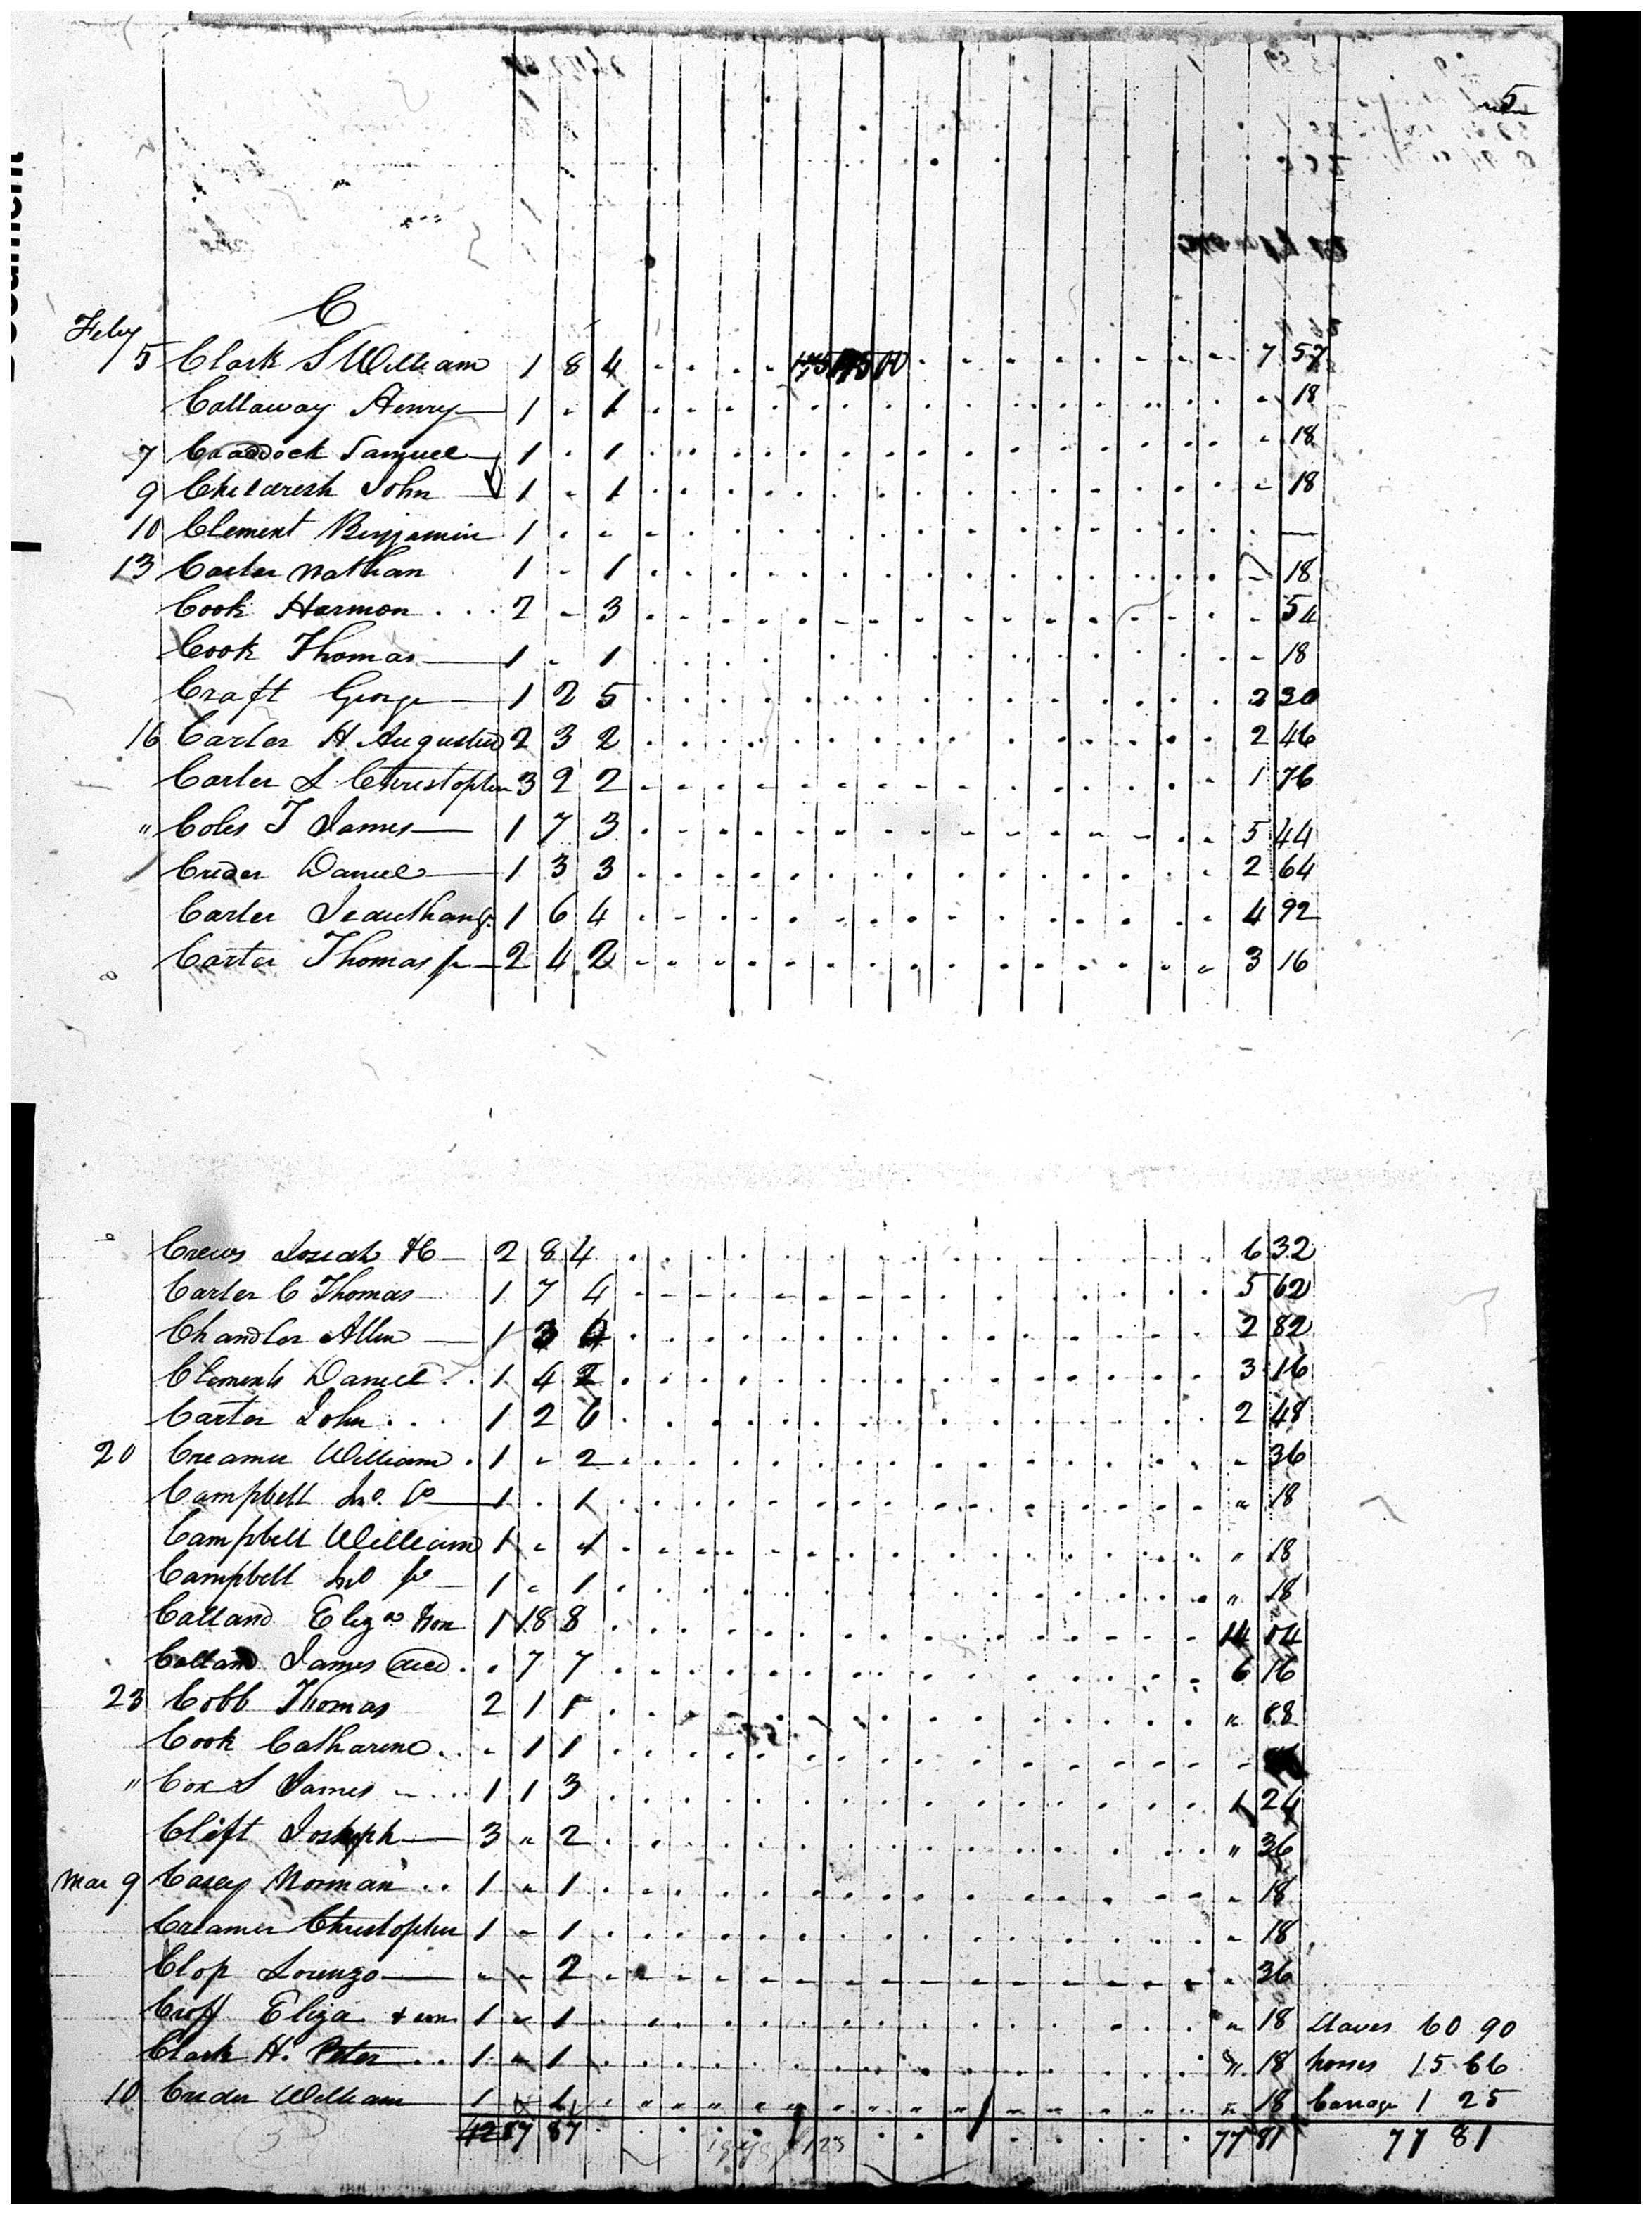 5
C
Feby
5 Clark S William 1 8 4 7 57
Callaway Henry 1 - 1 - 18
7 Craddock Samuel 1 - 1 - 18
9 Childresh John 1 - 1 - 18
10 Clement Benjamin 1 - - —
13 Carter Nathan 1 - 1 - 18
Cook Harmon 2 - 3 - 54
Cook Thomas 1 - 1 - 18
Craft George 1 2 5 2 30
16 Carter H Augustin 2 3 2 2 46
Carter L Christopher 3 2 2 1 76
" Coles T James 1 7 3 5 44
Crider Daniel 1 3 3 2 64
Carter Jeduthan 1 6 4 4 92
Carter Thomas 2 4 2 3 16
Crews Josiah 2 8 4 6 32
Carter C Thomas 1 7 4 5 62
Chandler Allen 1 3 4 2 82
Clements Daniel 1 4 2 3 16
Carter John 1 2 6 2 48
20 Creamer William 1 - 2 - 36
Campbell Jno. 1 - 1 " 18
Campbell William 1 - 1 " 18
Campbell Jno 1 - 1 " 18
Calland Eliza & son 1 18 8 14 04
Calland James decd - 7 7 6 16
23 Cobb Thomas 2 1 1 " 88
Cook Catharine - 1 1 -
" Cox S James 1 1 3 1 24
Clift Joseph 3 " 2 " 36
Mar 9 Casey Norman 1 " 1 - 18
Creamer Christopher 1 - 1 - 18
Clop Lorenzo - - 2 - 36
Croff Eliza & son 1 - 1 " 18 slaves 60 90
Clark H. Peter 1 " 1 " 18 horses 15 66
10 Crider William 1 - 1 " 18 Carriage 1 25
42 87 87 77 81 77 81